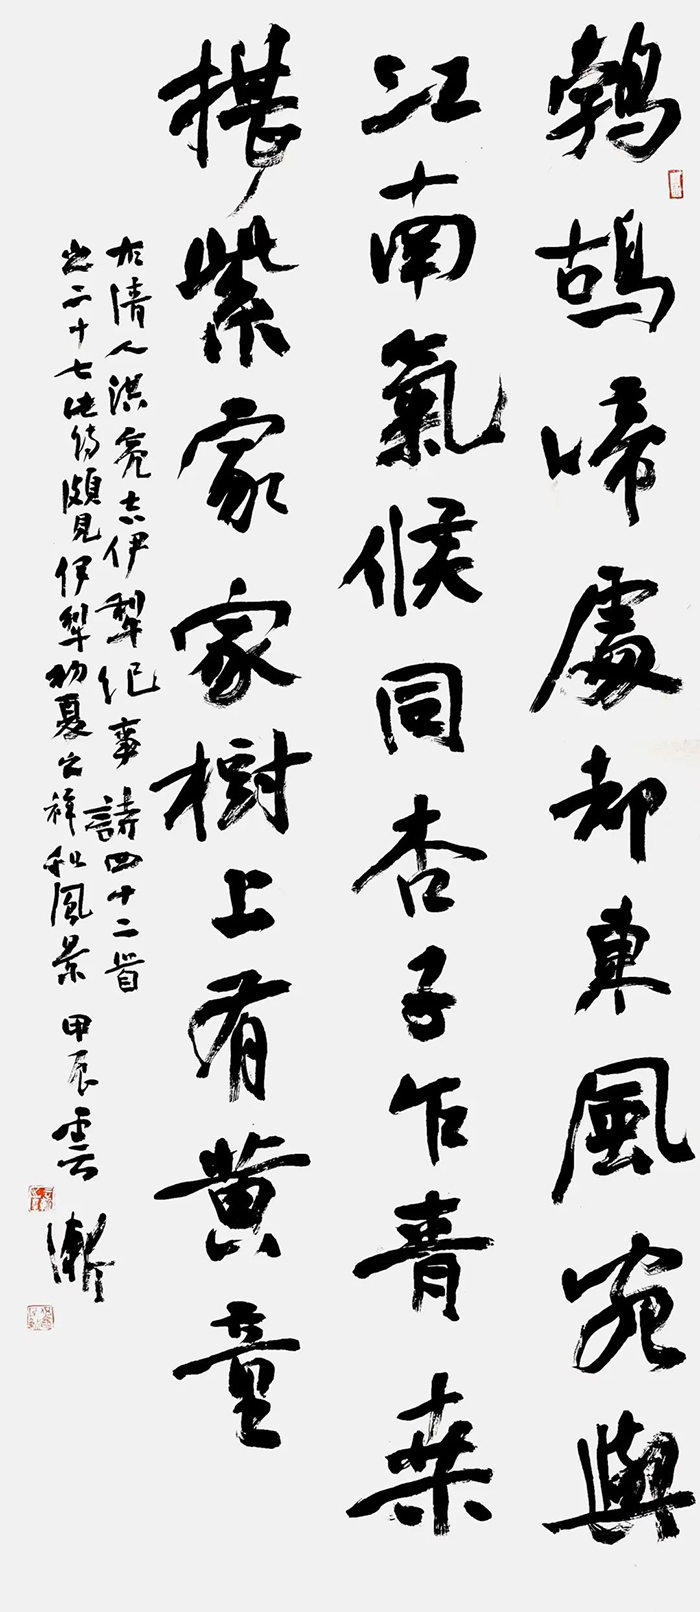 鵓鴣啼處却東風宛與
江南氣候同杏子乍青桑
椹紫家家樹上有黃童
右清人洪亮吉伊犁紀事詩四十二首
之二十七此詩頗見伊犁初夏之祥和風景 甲辰雲漸